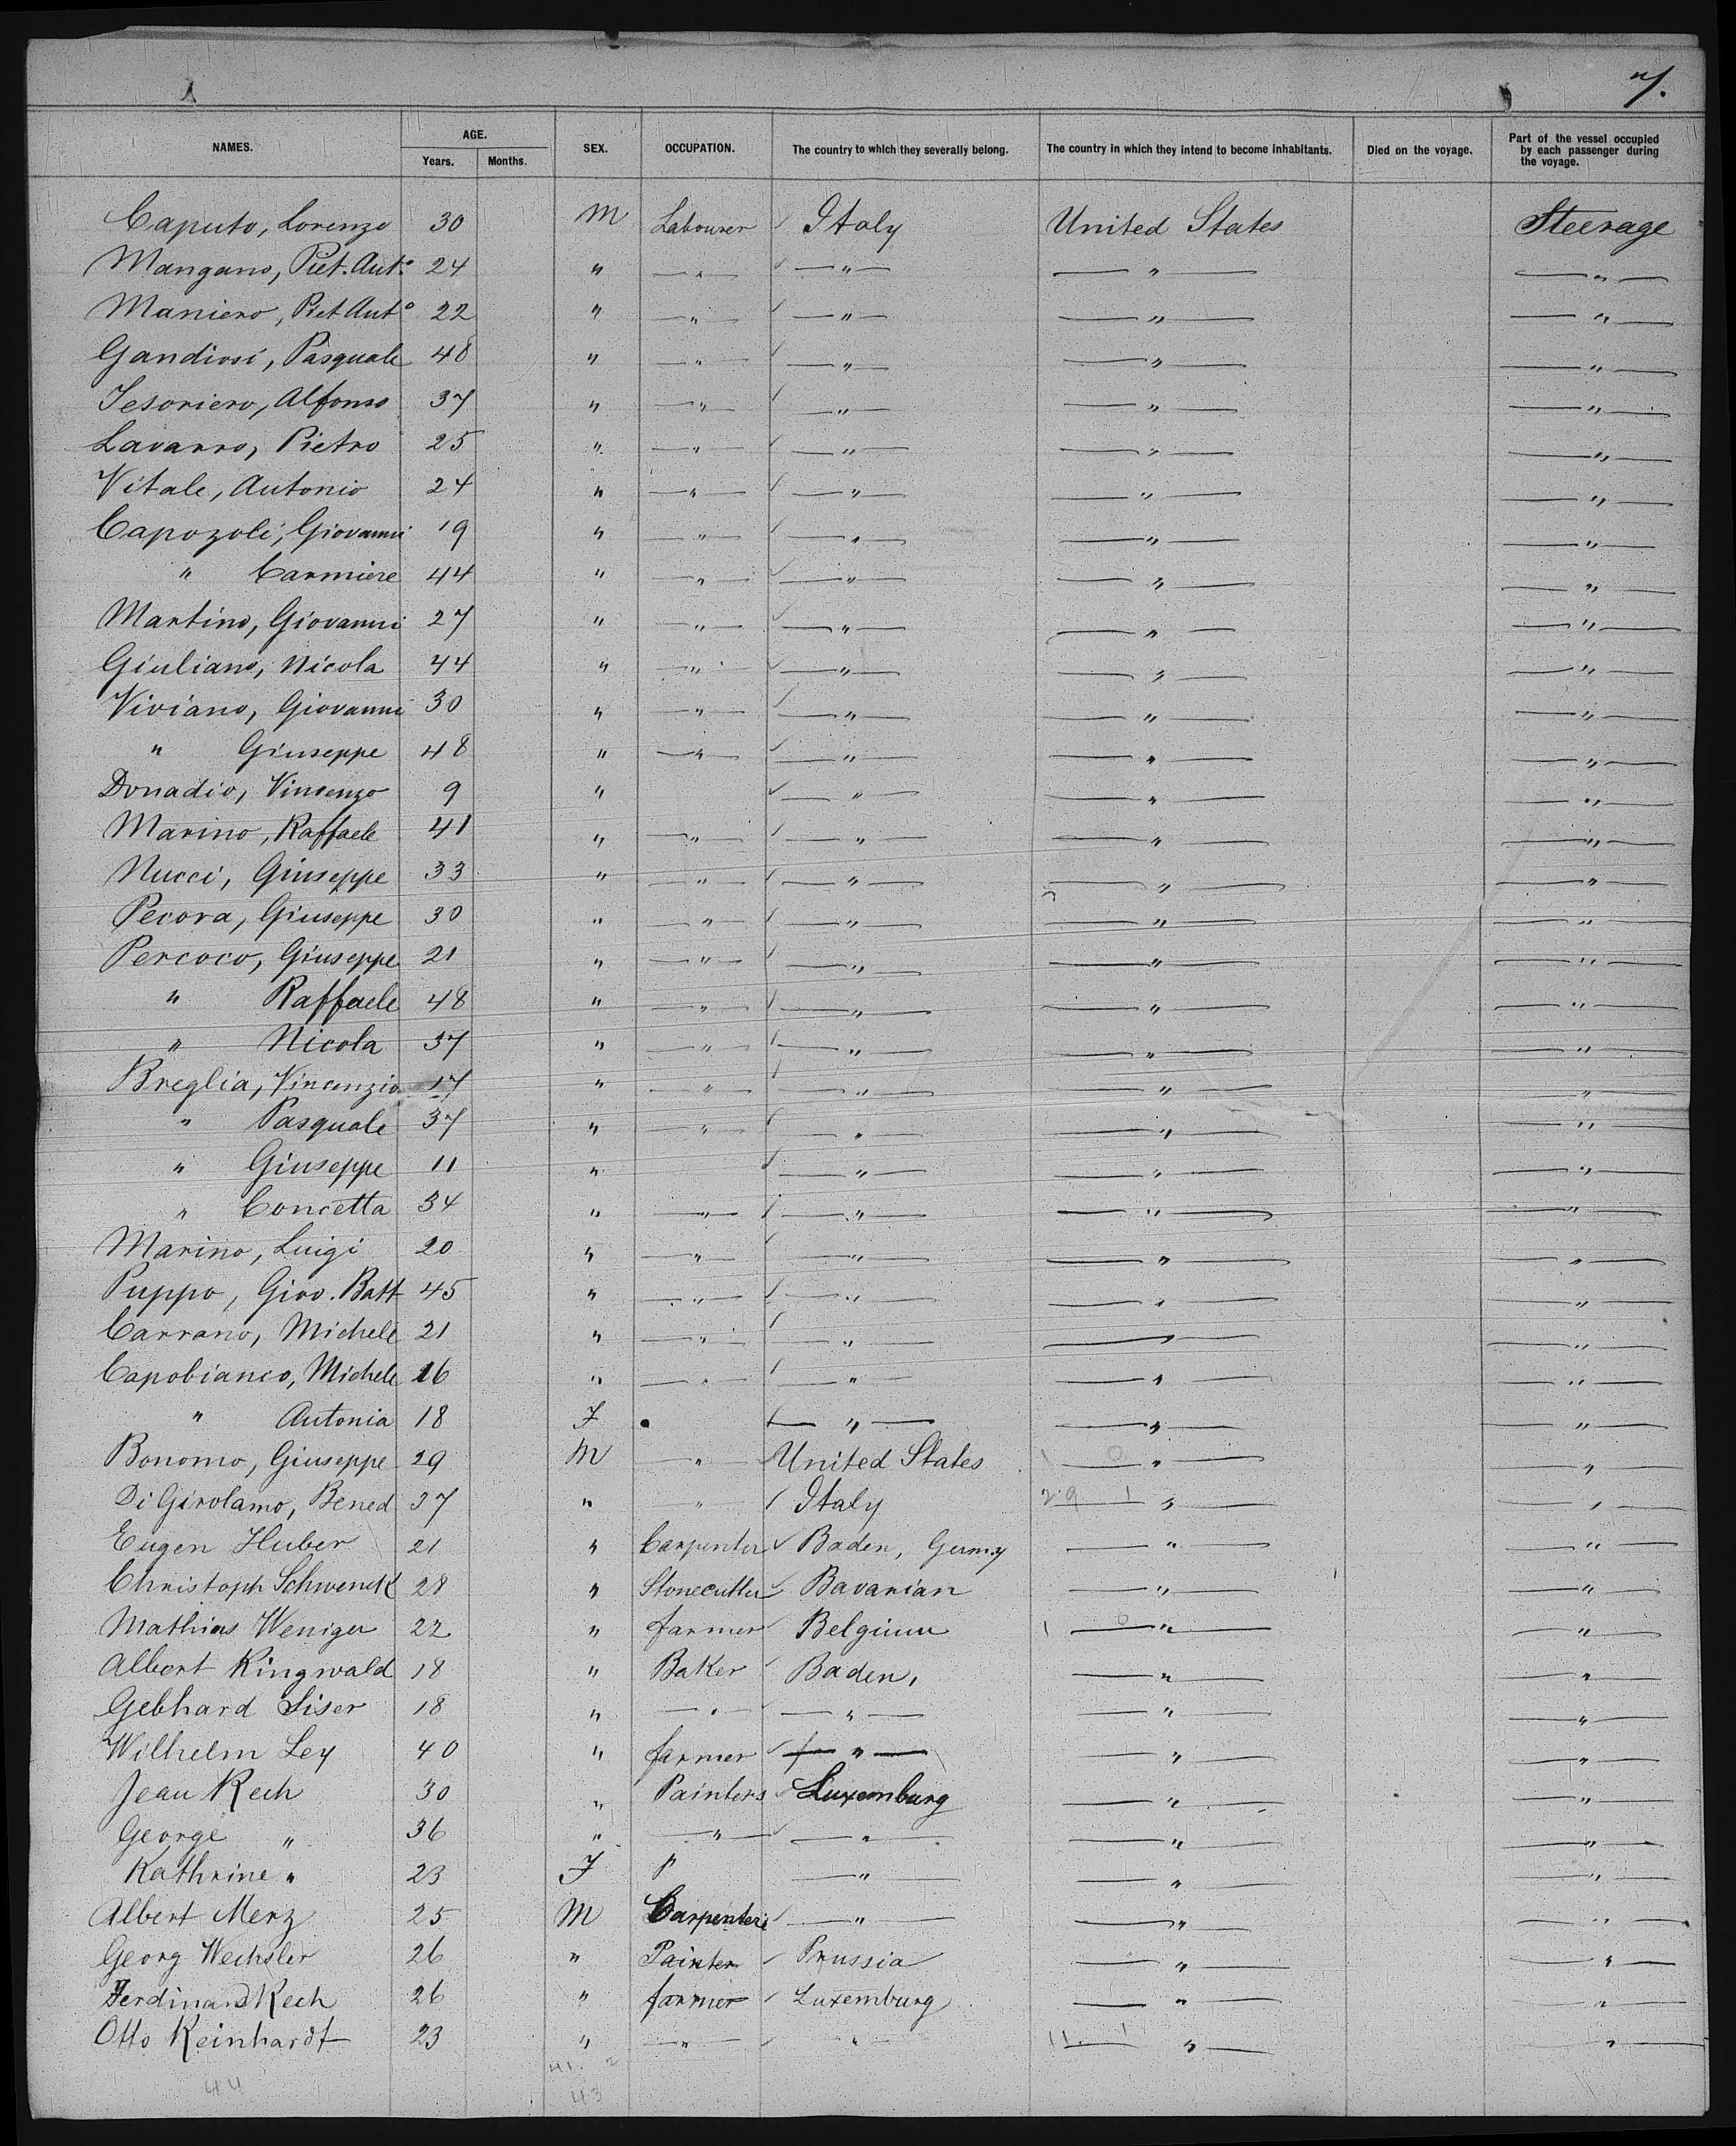 7.
NAMES. AGE. Years. Months. SEX. OCCUPATION. The country to which they severally belong. The country in which they intend to become inhabitants. Died on the voyage. Part of the vessel occupied by each passenger during the voyage.
Caputo, Lorenzo 30 M Labourer ✓ Italy United States Steerage
Mangano, Piet. Ant.° 24 " " ✓ " " "
Maniero, Piet Ant° 22 " " ✓ " " "
Gandiosi, Pasquale 48 " " ✓ " " "
Tesoriero, Alfonso 37 " " ✓ " " "
Lavarro, Pietro 25 " " ✓ " " "
Vitale, Antonio 24 " " ✓ " " "
Capozoli, Giovanni 19 " " ✓ " " "
" Carmiere 44 " " ✓ " " "
Martino, Giovanni 27 " " ✓ " " "
Giuliano, Nicola 44 " " ✓ " " "
Viviano, Giovanni 30 " " ✓ " " "
" Giuseppe 48 " " ✓ " " "
Donadio, Vincenzo 9 " ✓ " " "
Marino, Raffaele 41 " " ✓ " " "
Nucci, Giuseppe 33 " " ✓ " " "
Pecora, Giuseppe 30 " " ✓ " " "
Percoco, Giuseppe 21 " " ✓ " " "
" Raffaele 48 " " ✓ " " "
" Nicola 37 " " ✓ " " "
Breglia, Vincenzio 17 " " ✓ " " "
" Pasquale 37 " " ✓ " " "
" Giuseppe 11 " ✓ " " "
" Concetta 34 " " ✓ " " "
Marino, Luigi 20 " " ✓ " " "
Puppo, Giov. Batt 45 " " ✓ " " "
Carrano, Michele 21 " " ✓ " " "
Capobianco, Michele 26 " " ✓ " " "
" Antonia 18 F ✓ " " "
Bonomo, Giuseppe 29 M " United States 1 0 " "
Di Girolamo, Bened 37 " " ✓ Italy 29 1 " "
Eugen Huber 21 " Carpenter ✓ Baden, Germy " "
Christoph Schwenck 28 " Stonecutter ✓ Bavarian " "
Mathias Weniger 22 " farmer Belgium 1 0 " "
Albert Ringwald 18 " Baker ✓ Baden, " "
Gebhard Siser 18 " " " " "
Wilhelm Ley 40 " farmer ✓ " " "
Jean Rech 30 " Painters ✓ Luxemburg " "
George " 36 " " " " "
Kathrine " 23 F " " "
Albert Merz 25 M Carpenter ✓ " " "
Georg Wechsler 26 " Painter ✓ Prussia " "
Ferdinand Rech 26 " farmer ✓ Luxemburg " "
Otto Reinhardt 23 " " ✓ " 11. 1 " "
44 41. 2
43